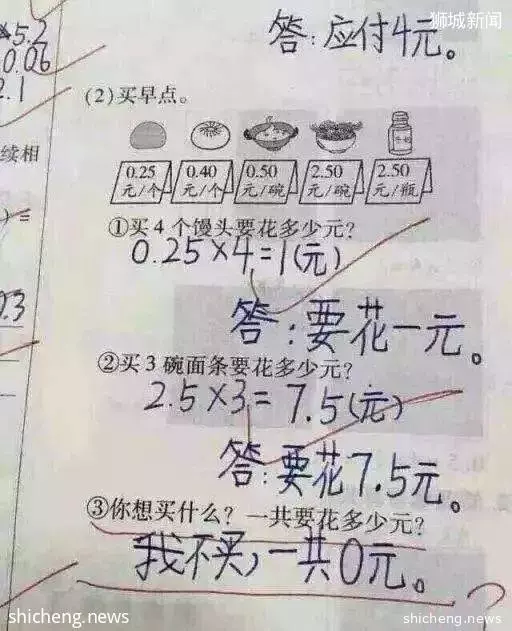 狮城新闻
×5.2
0.06
2.1
答：应付4元。
(2)买早点。
续相
0.25 0.40 0.50 2.50 2.50
元/个 元/个 元/碗 元/碗 元/瓶
①买4个馒头要花多少元？
) =
0.25×4=1(元)
0.3
答：要花一元。
②买3碗面条要花多少元？
2.5×3=7.5(元)
答：要花7.5元。
③你想买什么？一共要花多少元？
我不买，一共0元。
?
shicheng.news shicheng.news